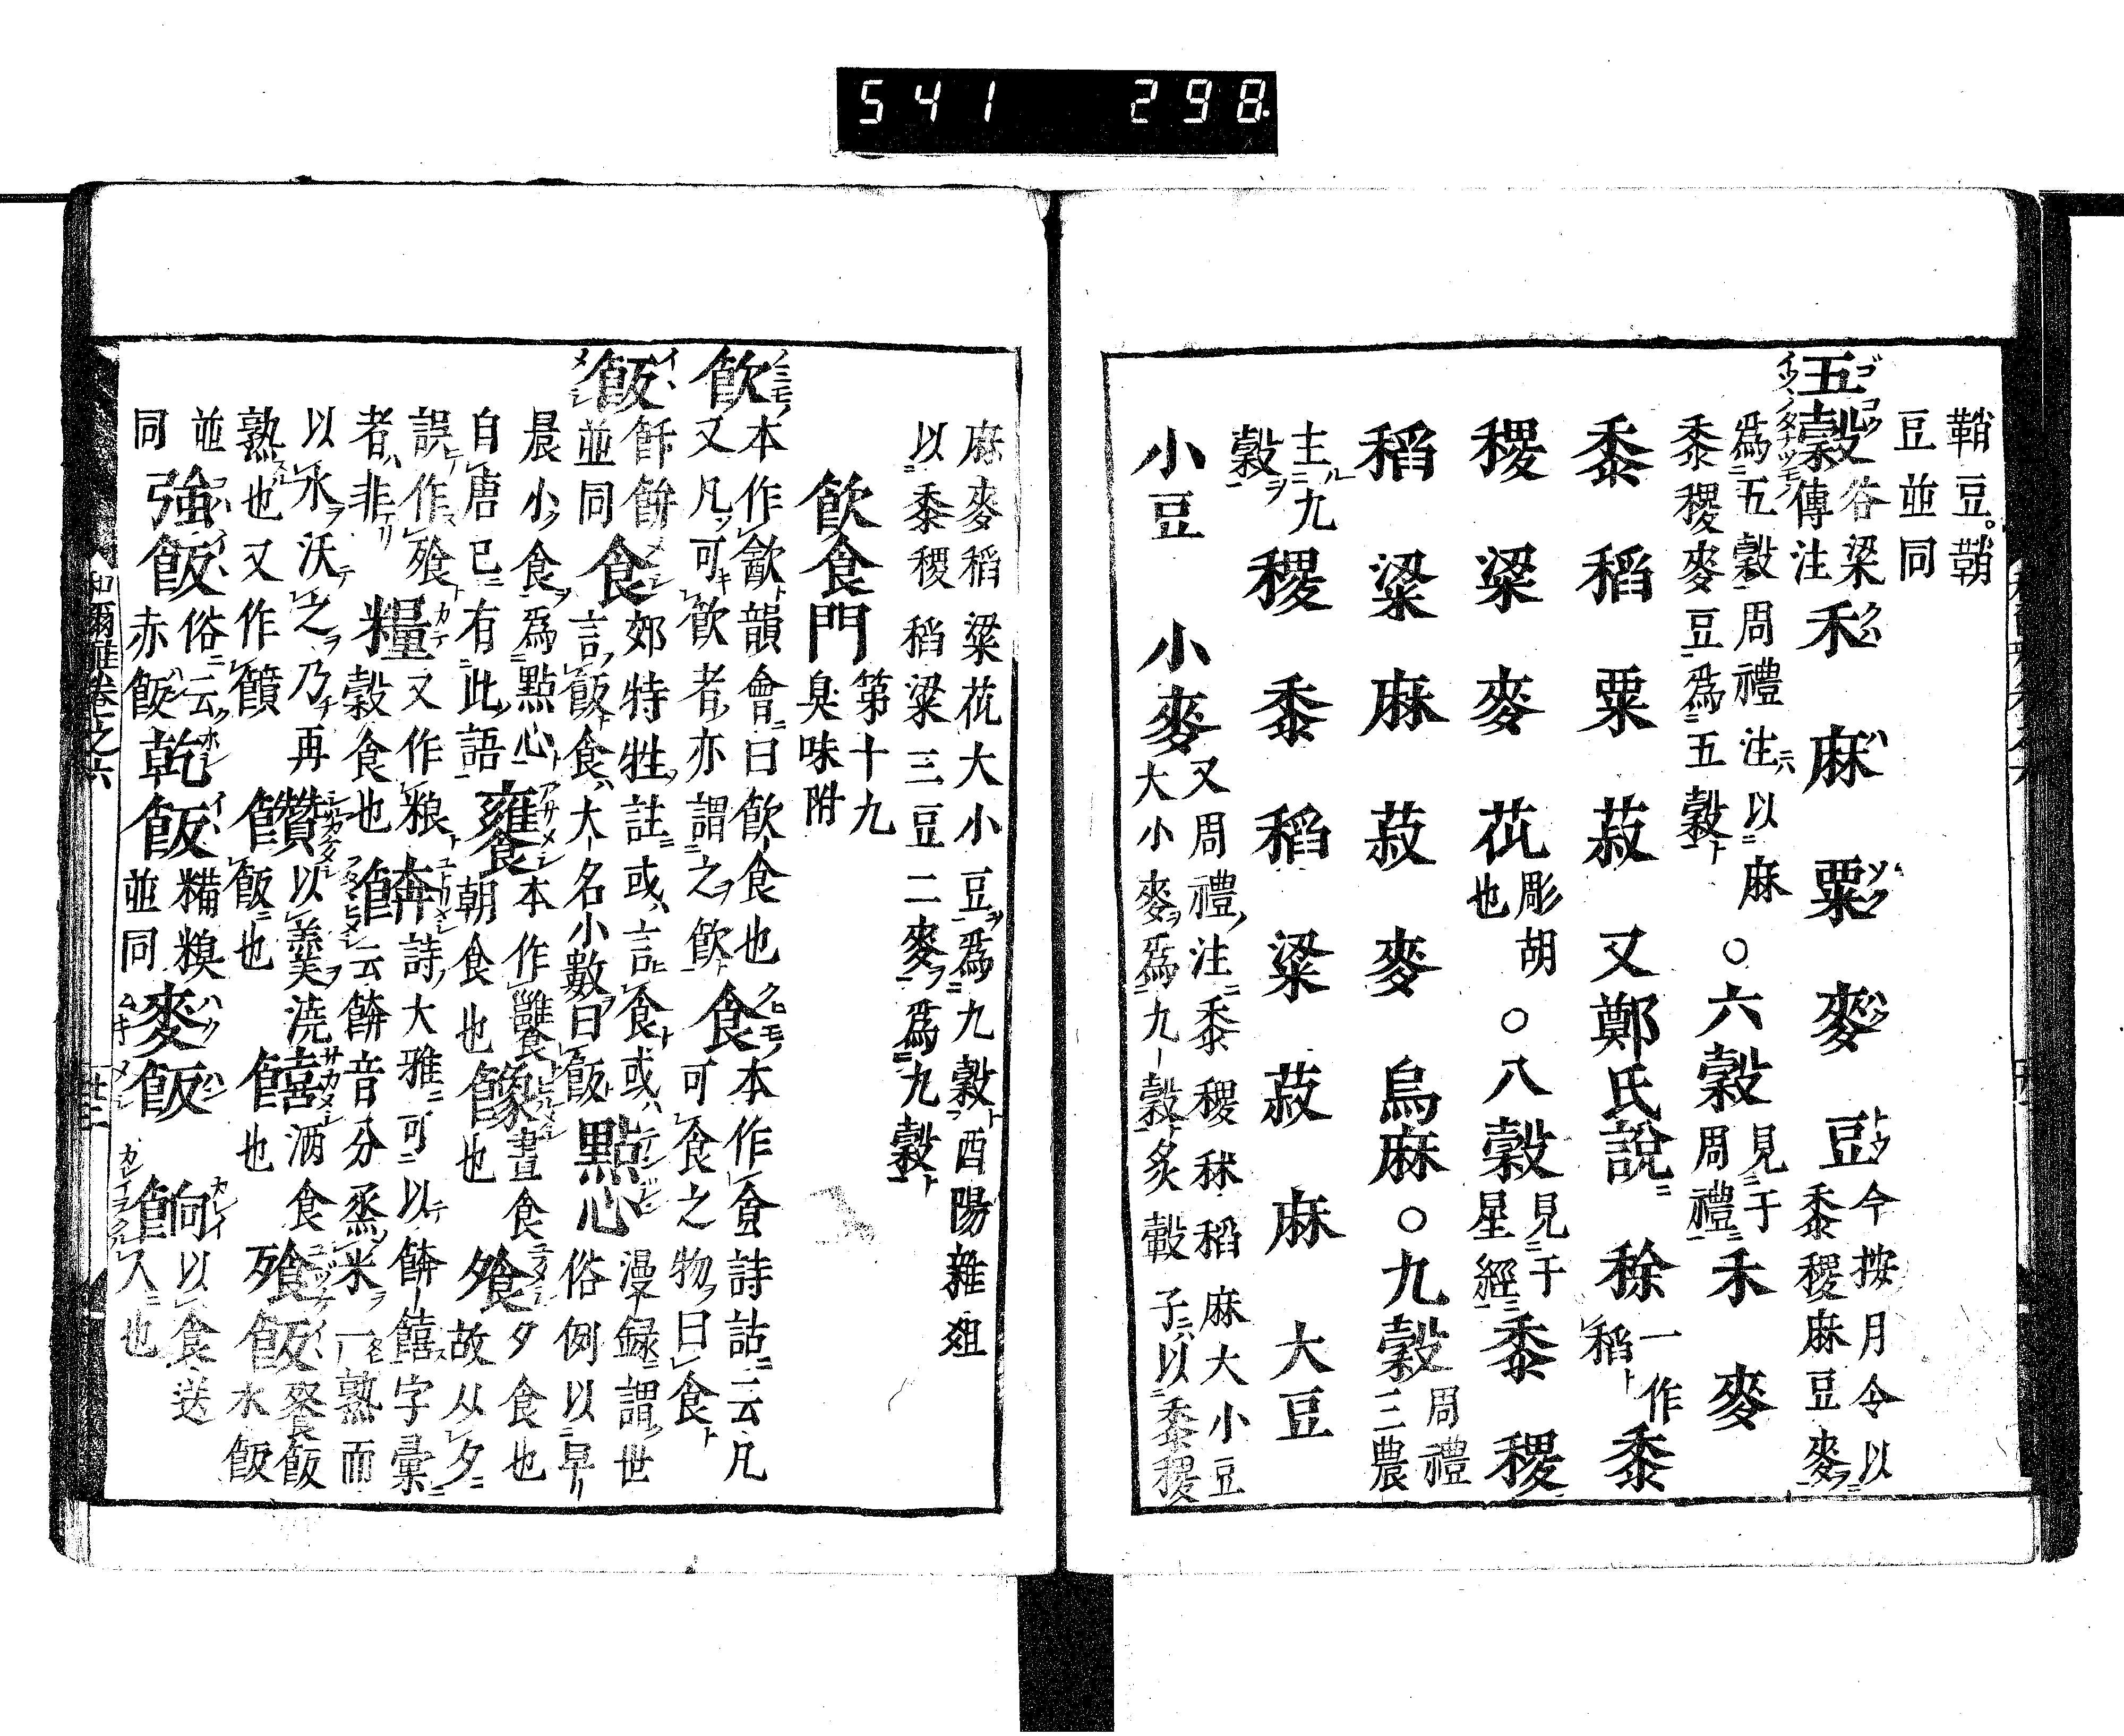 541 298
鞘豆。鞘
豆並同
五穀 谷梁傳注 禾 麻 粟 麥 豆 今按月令以黍稷麻豆麥
爲五穀周禮注以麻黍稷麥豆爲五穀 ○六穀 見于周禮 禾 麥
黍 稻 粟 菽 又鄭氏說 稌 一作稻 黍
稷 粱 麥 苽 彫胡也 ○八穀 見于星經 黍 稷
稻 粱 麻 菽 麥 烏麻 ○九穀 周禮三農
主九穀 稷 黍 稻 粱 菽 麻 大豆
小豆 小麥 又周禮注黍稷秫稻麻大小豆大小麥爲九穀炙轂子以黍稷
麻麥稻粱苽大小豆爲九穀酉陽雜爼
以黍稷稻粱三豆二麥爲九穀
飲食門 第十九 臭味附
飲 本作㱃韻會曰飲食也又凡可飲者亦謂之飲 食 本作𠊊詩詁云凡可食之物曰食
飯 飰䬳並同 食 郊特牲註或言食或言飯食大名小數曰飯 點心 漫録謂世俗例以早
晨小食爲點心自唐已有此語 饔 本作𩟷朝食也 餯 晝食也 飧 夕食也故从夕
誤作飱者非 糧 又作粮穀食也 餴 詩大雅可以餴饎字彙云餴音分烝米一熟而
以水沃之乃再熟也又作饙 饡 以羹澆飯也 饎 酒食也 飱飯 飧飯水飯
並同 強飯 俗云赤飯 乾飯 糒糗並同 麥飯 餉 以食送人也
和爾雅卷之六